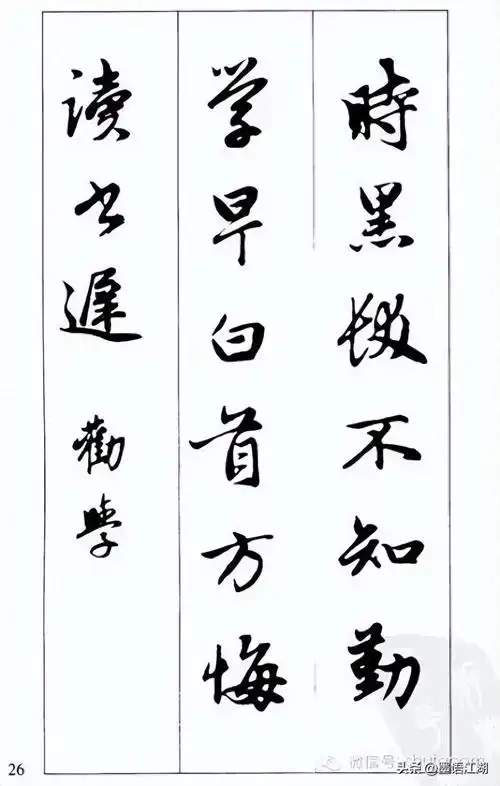 時黑髮不知勤
学早白首方悔
读书遲 勸學
26
头条@墨语江湖